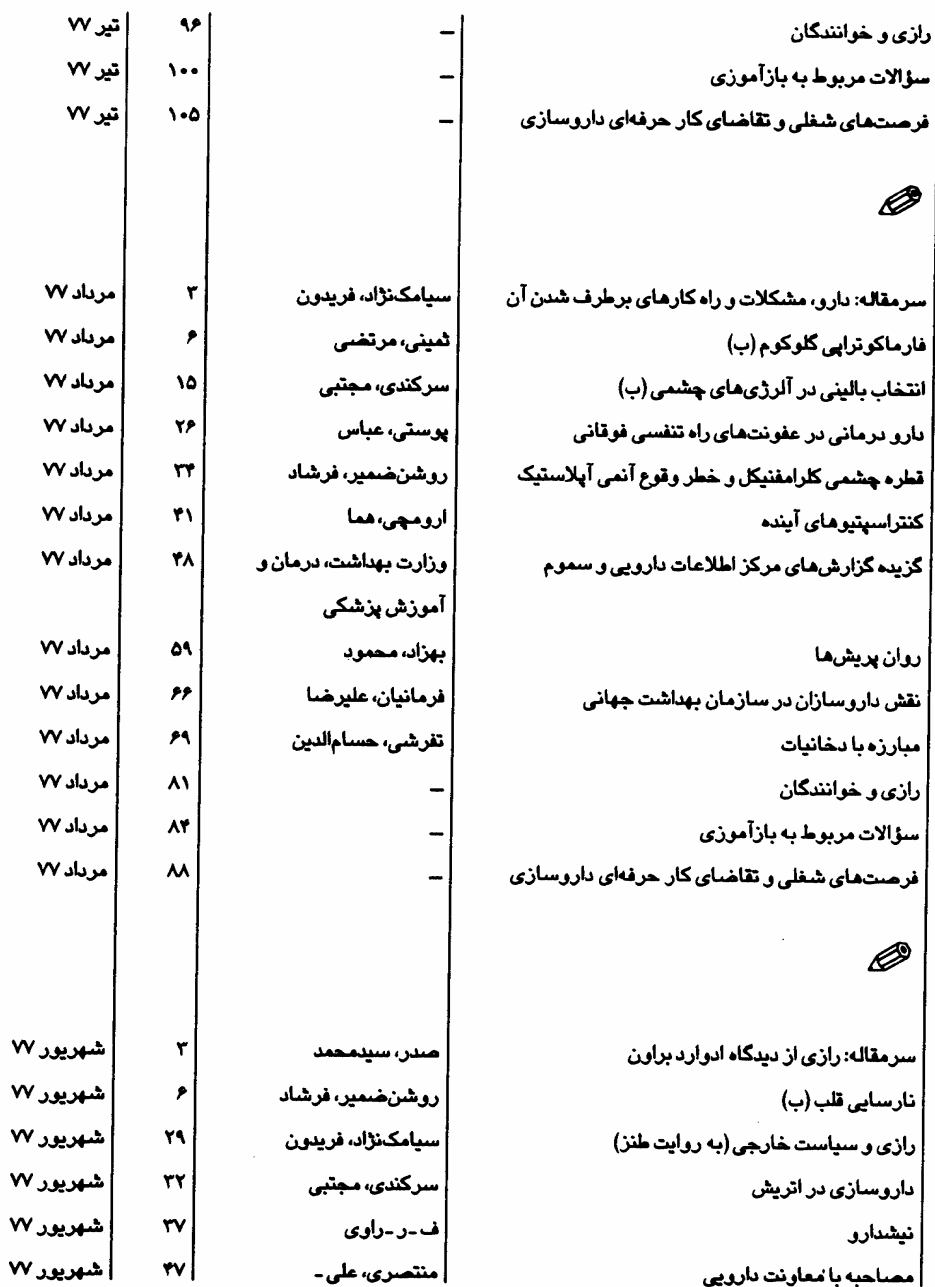 رازی و خوانندگان – ۹۶ تیر ۷۷
سؤالات مربوط به بازآموزی – ۱۰۰ تیر ۷۷
فرصت‌های شغلی و تقاضای کار حرفه‌ای داروسازی – ۱۰۵ تیر ۷۷
سرمقاله: دارو، مشکلات و راه کارهای برطرف شدن آن سیامک‌نژاد، فریدون ۳ مرداد ۷۷
فارماکوتراپی گلوکوم (ب) ثمینی، مرتضی ۶ مرداد ۷۷
انتخاب بالینی در آلرژی‌های چشمی (ب) سرکندی، مجتبی ۱۵ مرداد ۷۷
دارو درمانی در عفونت‌های راه تنفسی فوقانی پوستی، عباس ۲۶ مرداد ۷۷
قطره چشمی کلرامفنیکل و خطر وقوع آنمی آپلاستیک روشن‌ضمیر، فرشاد ۳۴ مرداد ۷۷
کنتراسپتیوهای آینده ارومچی، هما ۴۱ مرداد ۷۷
گزیده گزارش‌های مرکز اطلاعات دارویی و سموم وزارت بهداشت، درمان و ۴۸ مرداد ۷۷
آموزش پزشکی
روان پریش‌ها بهزاد، محمود ۵۹ مرداد ۷۷
نقش داروسازان در سازمان بهداشت جهانی فرمانیان، علیرضا ۶۶ مرداد ۷۷
مبارزه با دخانیات تفرشی، حسام‌الدین ۶۹ مرداد ۷۷
رازی و خوانندگان – ۸۱ مرداد ۷۷
سؤالات مربوط به بازآموزی – ۸۴ مرداد ۷۷
فرصت‌های شغلی و تقاضای کار حرفه‌ای داروسازی – ۸۸ مرداد ۷۷
سرمقاله: رازی از دیدگاه ادوارد براون صدر، سیدمحمد ۳ شهریور ۷۷
نارسایی قلب (ب) روشن‌ضمیر، فرشاد ۶ شهریور ۷۷
رازی و سیاست خارجی (به روایت طنز) سیامک‌نژاد، فریدون ۲۹ شهریور ۷۷
داروسازی در اتریش سرکندی، مجتبی ۳۲ شهریور ۷۷
نیشدارو ف -ر -راوی ۳۷ شهریور ۷۷
مصاحبه با معاونت دارویی منتصری، علی - ۴۷ شهریور ۷۷